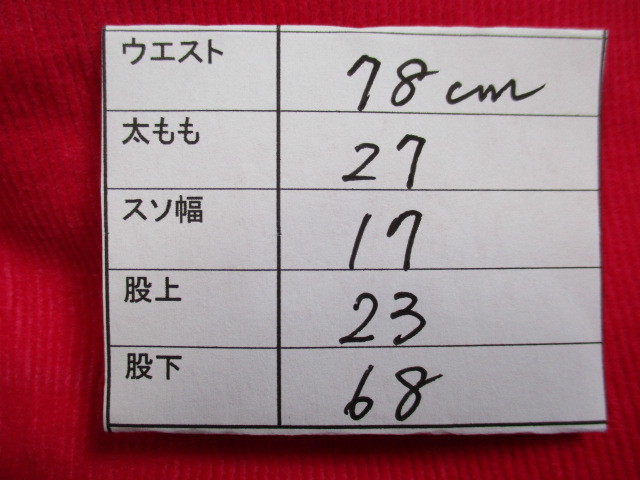 ウエスト 78cm
太もも 27
スソ幅 17
股上 23
股下 68